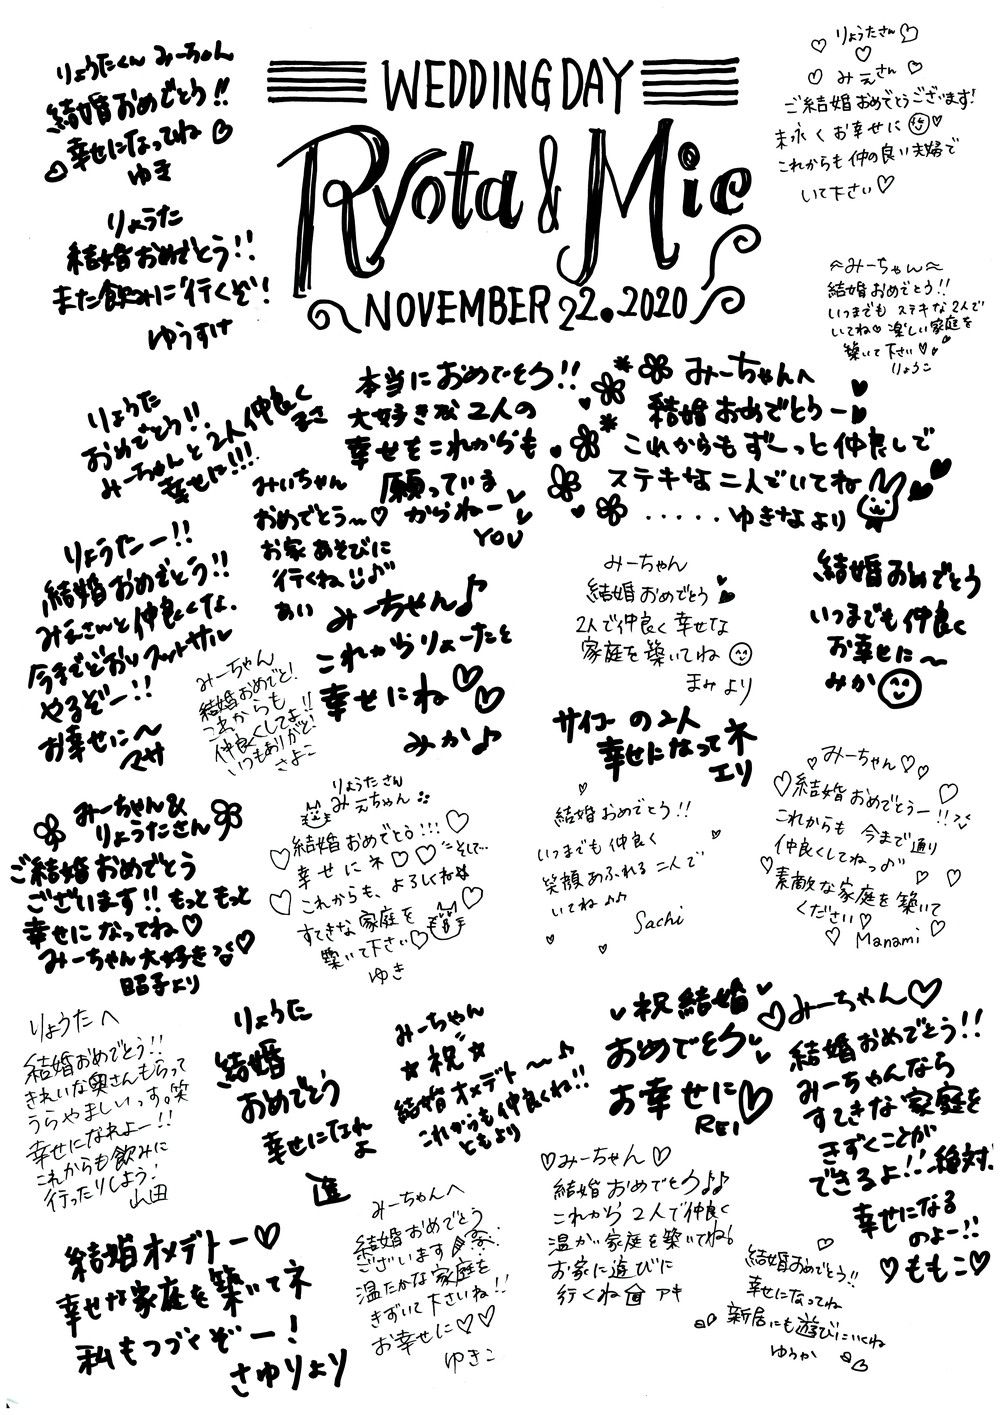 WEDDING DAY
Ryota & Mie
NOVEMBER 22.2020
りょうたくん みーちゃん
結婚おめでとう!!
幸せになってね
ゆき
りょうたさん
みえさん
ご結婚おめでとうございます!
末永くお幸せに
これからも仲の良い夫婦で
いて下さい♡
りょうた
結婚おめでとう!!
また飲みに行くぞ!
ゆうすけ
~みーちゃん~
結婚おめでとう!!
いつまでもステキな2人で
いてね♡楽しい家庭を
築いて下さい♡
りょうこ
りょうた
おめでとう!!
みーちゃんと2人仲良く
幸せに!!!
まさ
本当におめでとう!!
大好きな2人の
幸せをこれからも
願っていま
からねー
YOU
みーちゃんへ
結婚おめでとうー
これからもずーっと仲良しで
ステキな二人でいてね
.....ゆきなより
みいちゃん
おめでとう〜♡
お家あそびに
行くね♪
あい
りょうたー!!
結婚おめでとう!!
みえさんと仲良くな.
今までどおりフットサル
やるぞー!!
お幸せに〜
マサ
みーちゃん
結婚おめでと!
これからも
仲良くしてよ!!
いつもありがと!
さよこ
みーちゃん♪
これからりょーたと
幸せにね♡♡
みか♪
みーちゃん
結婚おめでとう
2人で仲良く幸せな
家庭を築いてね
まみより
結婚おめでとう
いつまでも仲良く
お幸せに〜
みか
サイコーの2人
幸せになってネ
エリ
みーちゃん&
りょうたさん
ご結婚おめでとう
ございます!!もっともっと
幸せになってね♡
みーちゃん大好き♡
昭子より
りょうたさん
みえちゃん
結婚おめでとう!!!
幸せにネ♡♡そして…
これからも、よろしくね
すてきな家庭を
築いて下さい♡
ゆき
結婚おめでとう!!
いつまでも仲良く
笑顔あふれる二人で
いてね♪♪
Sachi
みーちゃん♡♡
結婚おめでとうー!!
これからも今まで通り
仲良くしてねっ♪
素敵な家庭を築いて
ください♡
Manami
りょうたへ
結婚おめでとう!!
きれいな奥さんもらって
うらやましいっす。笑
幸せになれよー!!
これからも飲みに
行ったりしよう!
山田
りょうた
結婚
おめでとう
幸せになれ
よ
進
みーちゃん
☆祝☆
結婚オメデト〜♪
これからも仲良くね!!
ともより
祝結婚
おめでとう
お幸せに♡
REI
みーちゃん♡
結婚おめでとう!!
みーちゃんなら
すてきな家庭を
きずくことが
できるよ!!絶対!
幸せになる
のよー!!
♡ももこ♡
結婚オメデトー♡
幸せな家庭を築いてネ
私もつづくぞー!
さゆりより
みーちゃんへ
結婚おめでとう
ございます
温たかな家庭を
きずいて下さいね!!
お幸せに♡♡
ゆきこ
♡みーちゃん♡
結婚おめでとう♪♪
これから2人で仲良く
温かい家庭を築いてね
お家に遊びに
行くね アキ
結婚おめでとう!!
幸せになってね
新居にも遊びにいくね
ゆうか